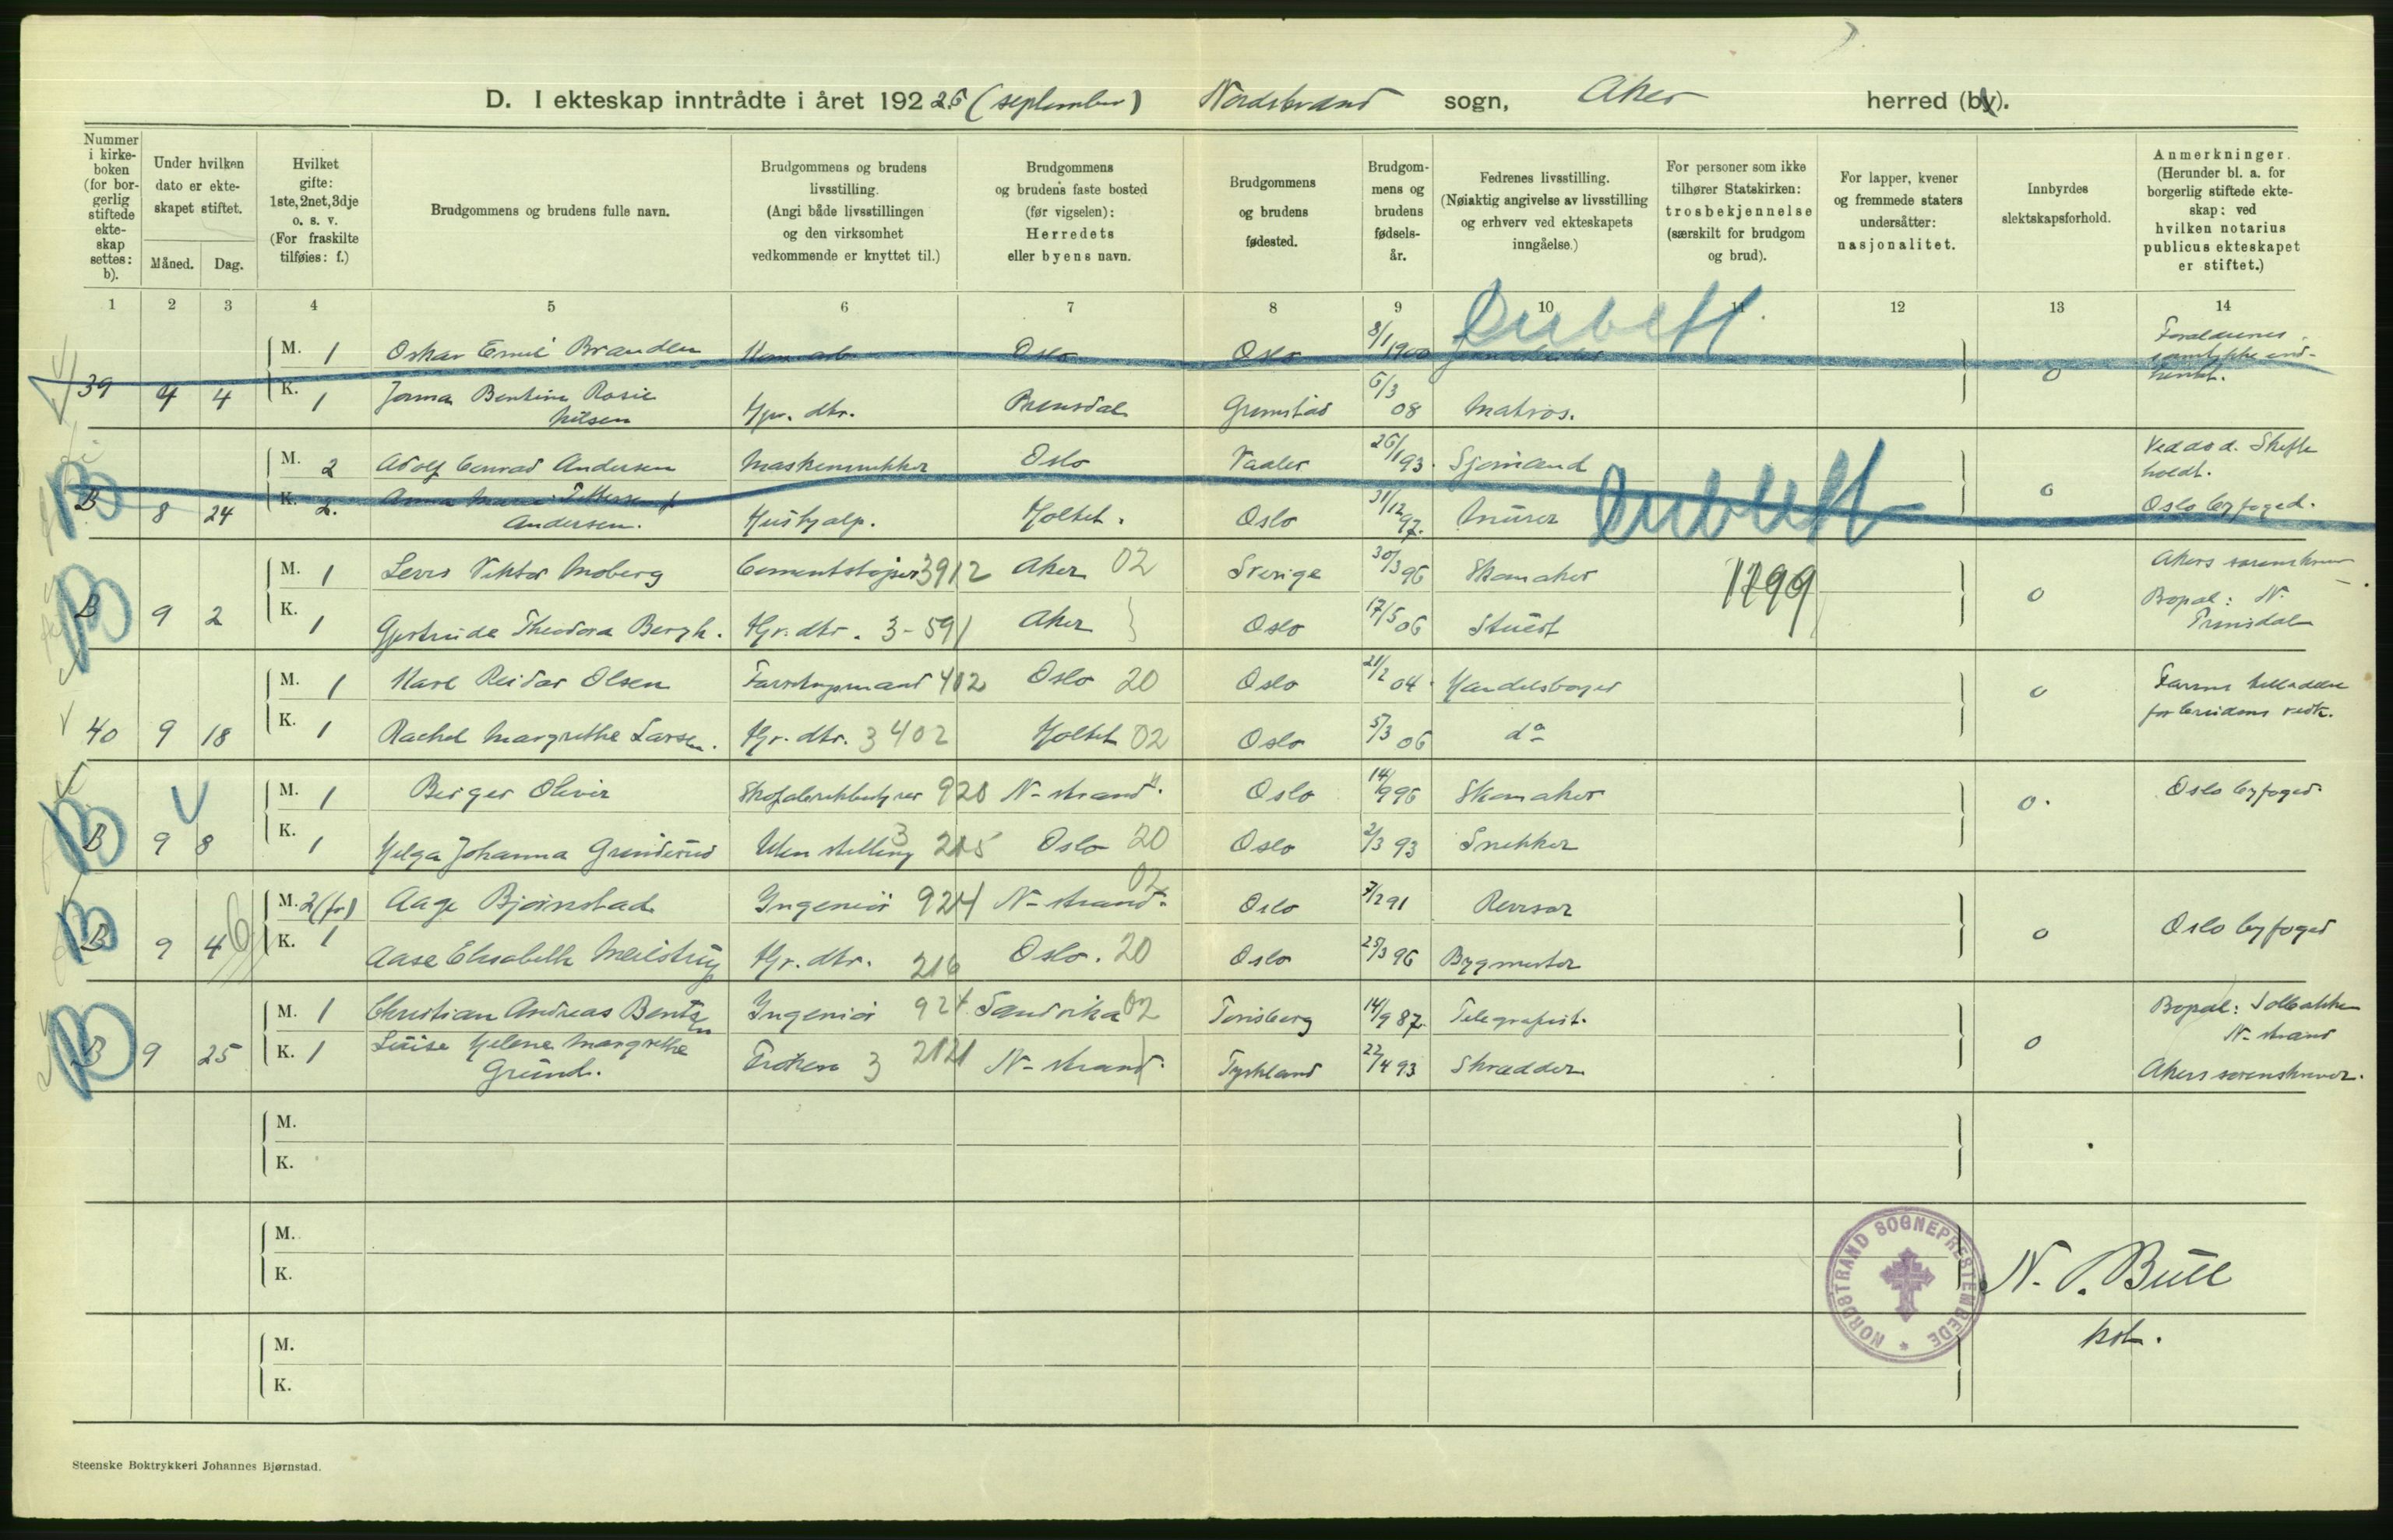 D. I ekteskap inntrådte i året 192 26 (september) Nordstrand sogn, Aker herred (by).
Nummer i kirkeboken (for borgerlig stiftede ekteskap settes: b).
Under hvilken dato er ekteskapet stiftet.
Måned. Dag.
Hvilket gifte: 1ste, 2net, 3dje o. s. v. (For fraskilte tilføies: f.)
Brudgommens og brudens fulle navn.
Brudgommens og brudens livsstilling. (Angi både livsstillingen og den virksomhet vedkommende er knyttet til.)
Brudgommens og brudens faste bosted (før vigselen): Herredets eller byens navn.
Brudgommens og brudens fødested.
Brudgommens og brudens fødselsår.
Fedrenes livsstilling. (Nøiaktig angivelse av livsstilling og erhverv ved ekteskapets inngåelse.)
For personer som ikke tilhører Statskirken: trosbekjennelse (særskilt for brudgom og brud).
For lapper, kvener og fremmede staters undersåtter: nasjonalitet.
Innbyrdes slektskapsforhold.
Anmerkninger. (Herunder bl. a. for borgerlig stiftede ekteskap: ved hvilken notarius publicus ekteskapet er stiftet.)
1 2 3 4 5 6 7 8 9 10 11 12 13 14
Dublett
M. 1 Oskar Emil Oslo Oslo 8/1 1900 Foreldrenes
39 4 4 K. 1 Bentine Rosie Nilsen Hjv. dtr. Brensdal Grimstad 6/3 08 Matros. 0
M. 2 Adolf Conrad Andersen Maskinsnekker Oslo Vaaler 26/1 93. Sjømand Ved død. Skifte holdt.
B 8 24 K. 2. Anna Marie Pettersen f Andersen. Hushjælp. Holtet. Oslo 31/12 97. Murer Dublett 0 Oslo byfoged.
M. 1 Viktor Moberg Cementstøper 3912 Aker 02 Sverige 30/3 96 Skomaker 1799 Akers sorenskriver
B 9 2 K. 1 Gjertrude Theodora Bergh. Hjv. dtr. 3-591 Aker } Oslo 17/5 06 Stuert 0 Bopæl: N.
M. 1 Karl Reidar Olsen 402 Oslo 20 Oslo 21/2 04. 0
40 9 18 K. 1 Rachel Margrethe Larsen. Hjv. dtr. 3 402 Holtet 02 Oslo 5/3 06 do for brudens vedk.
M. 1 Birger Olivir 920 N-strand". Oslo 14/9 96 Skomaker Oslo byfoged.
B 9 8 K. 1 Helga Johanna Grinderud Uten stilling 3 215 Oslo 20 Oslo 2/3 93 Snekker 0.
M. 2(fr) Aage Bjørnstad Ingeniør 924 N-strand. 02 Oslo 7/2 91 Revisor
B 9 4 6 K. 1 Aase Elisabeth Meilstrup Hjv. dtr. 216 Oslo. 20 Oslo 25/3 96 Bygmester 0 Oslo byfoged
M. 1 Christian Andreas Bentzen Ingeniør 924 Sandvika 02 Tønsberg 14/9 87. Telegrafist. Bopæl: Solbakken N-strand
B 9 25 K. 1 Louise Helene Margrethe Grund. Frøken 3 2121 N-strand. Tyskland 22/4 93 Skrædder 0 Akers sorenskriver.
M.
K.
M.
K.
M.
K.
NORDSTRAND SOGNEPRESTEMBEDE
N. Bull
Steenske Boktrykkeri Johannes Bjørnstad.